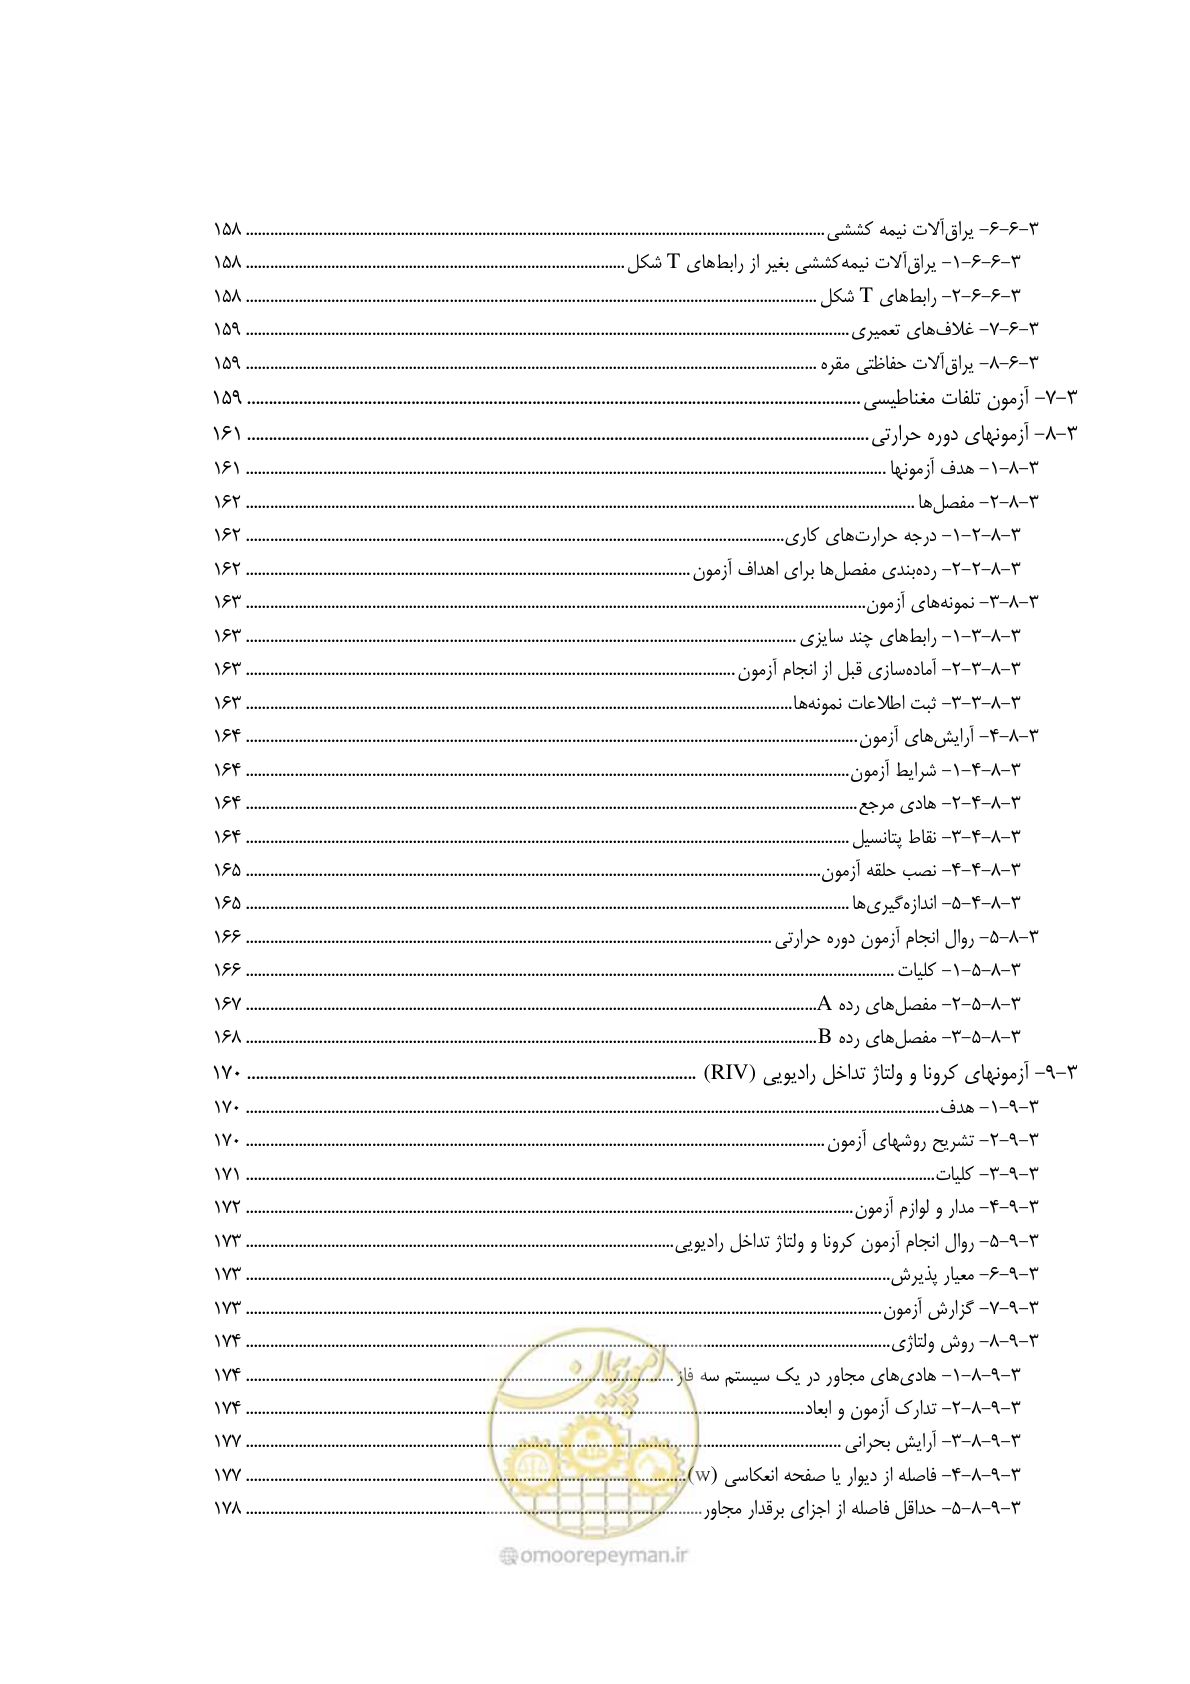 ۳-۶-۶- یراق‌آلات نیمه کششی ........ ۱۵۸
۳-۶-۶-۱- یراق‌آلات نیمه‌کششی بغیر از رابط‌های T شکل ........ ۱۵۸
۳-۶-۶-۲- رابط‌های T شکل ........ ۱۵۸
۳-۶-۷- غلاف‌های تعمیری ........ ۱۵۹
۳-۶-۸- یراق‌آلات حفاظتی مقره ........ ۱۵۹
۳-۷- آزمون تلفات مغناطیسی ........ ۱۵۹
۳-۸- آزمونهای دوره حرارتی ........ ۱۶۱
۳-۸-۱- هدف آزمونها ........ ۱۶۱
۳-۸-۲- مفصل‌ها ........ ۱۶۲
۳-۸-۲-۱- درجه حرارت‌های کاری ........ ۱۶۲
۳-۸-۲-۲- رده‌بندی مفصل‌ها برای اهداف آزمون ........ ۱۶۲
۳-۸-۳- نمونه‌های آزمون ........ ۱۶۳
۳-۸-۳-۱- رابط‌های چند سایزی ........ ۱۶۳
۳-۸-۳-۲- آماده‌سازی قبل از انجام آزمون ........ ۱۶۳
۳-۸-۳-۳- ثبت اطلاعات نمونه‌ها ........ ۱۶۳
۳-۸-۴- آرایش‌های آزمون ........ ۱۶۴
۳-۸-۴-۱- شرایط آزمون ........ ۱۶۴
۳-۸-۴-۲- هادی مرجع ........ ۱۶۴
۳-۸-۴-۳- نقاط پتانسیل ........ ۱۶۴
۳-۸-۴-۴- نصب حلقه آزمون ........ ۱۶۵
۳-۸-۴-۵- اندازه‌گیری‌ها ........ ۱۶۵
۳-۸-۵- روال انجام آزمون دوره حرارتی ........ ۱۶۶
۳-۸-۵-۱- کلیات ........ ۱۶۶
۳-۸-۵-۲- مفصل‌های رده A ........ ۱۶۷
۳-۸-۵-۳- مفصل‌های رده B ........ ۱۶۸
۳-۹- آزمونهای کرونا و ولتاژ تداخل رادیویی (RIV) ........ ۱۷۰
۳-۹-۱- هدف ........ ۱۷۰
۳-۹-۲- تشریح روشهای آزمون ........ ۱۷۰
۳-۹-۳- کلیات ........ ۱۷۱
۳-۹-۴- مدار و لوازم آزمون ........ ۱۷۲
۳-۹-۵- روال انجام آزمون کرونا و ولتاژ تداخل رادیویی ........ ۱۷۳
۳-۹-۶- معیار پذیرش ........ ۱۷۳
۳-۹-۷- گزارش آزمون ........ ۱۷۳
۳-۹-۸- روش ولتاژی ........ ۱۷۴
۳-۹-۸-۱- هادی‌های مجاور در یک سیستم سه فاز ........ ۱۷۴
۳-۹-۸-۲- تدارک آزمون و ابعاد ........ ۱۷۴
۳-۹-۸-۳- آرایش بحرانی ........ ۱۷۷
۳-۹-۸-۴- فاصله از دیوار یا صفحه انعکاسی (w) ........ ۱۷۷
۳-۹-۸-۵- حداقل فاصله از اجزای برقدار مجاور ........ ۱۷۸
امور پیمان
@omoorepeyman.ir